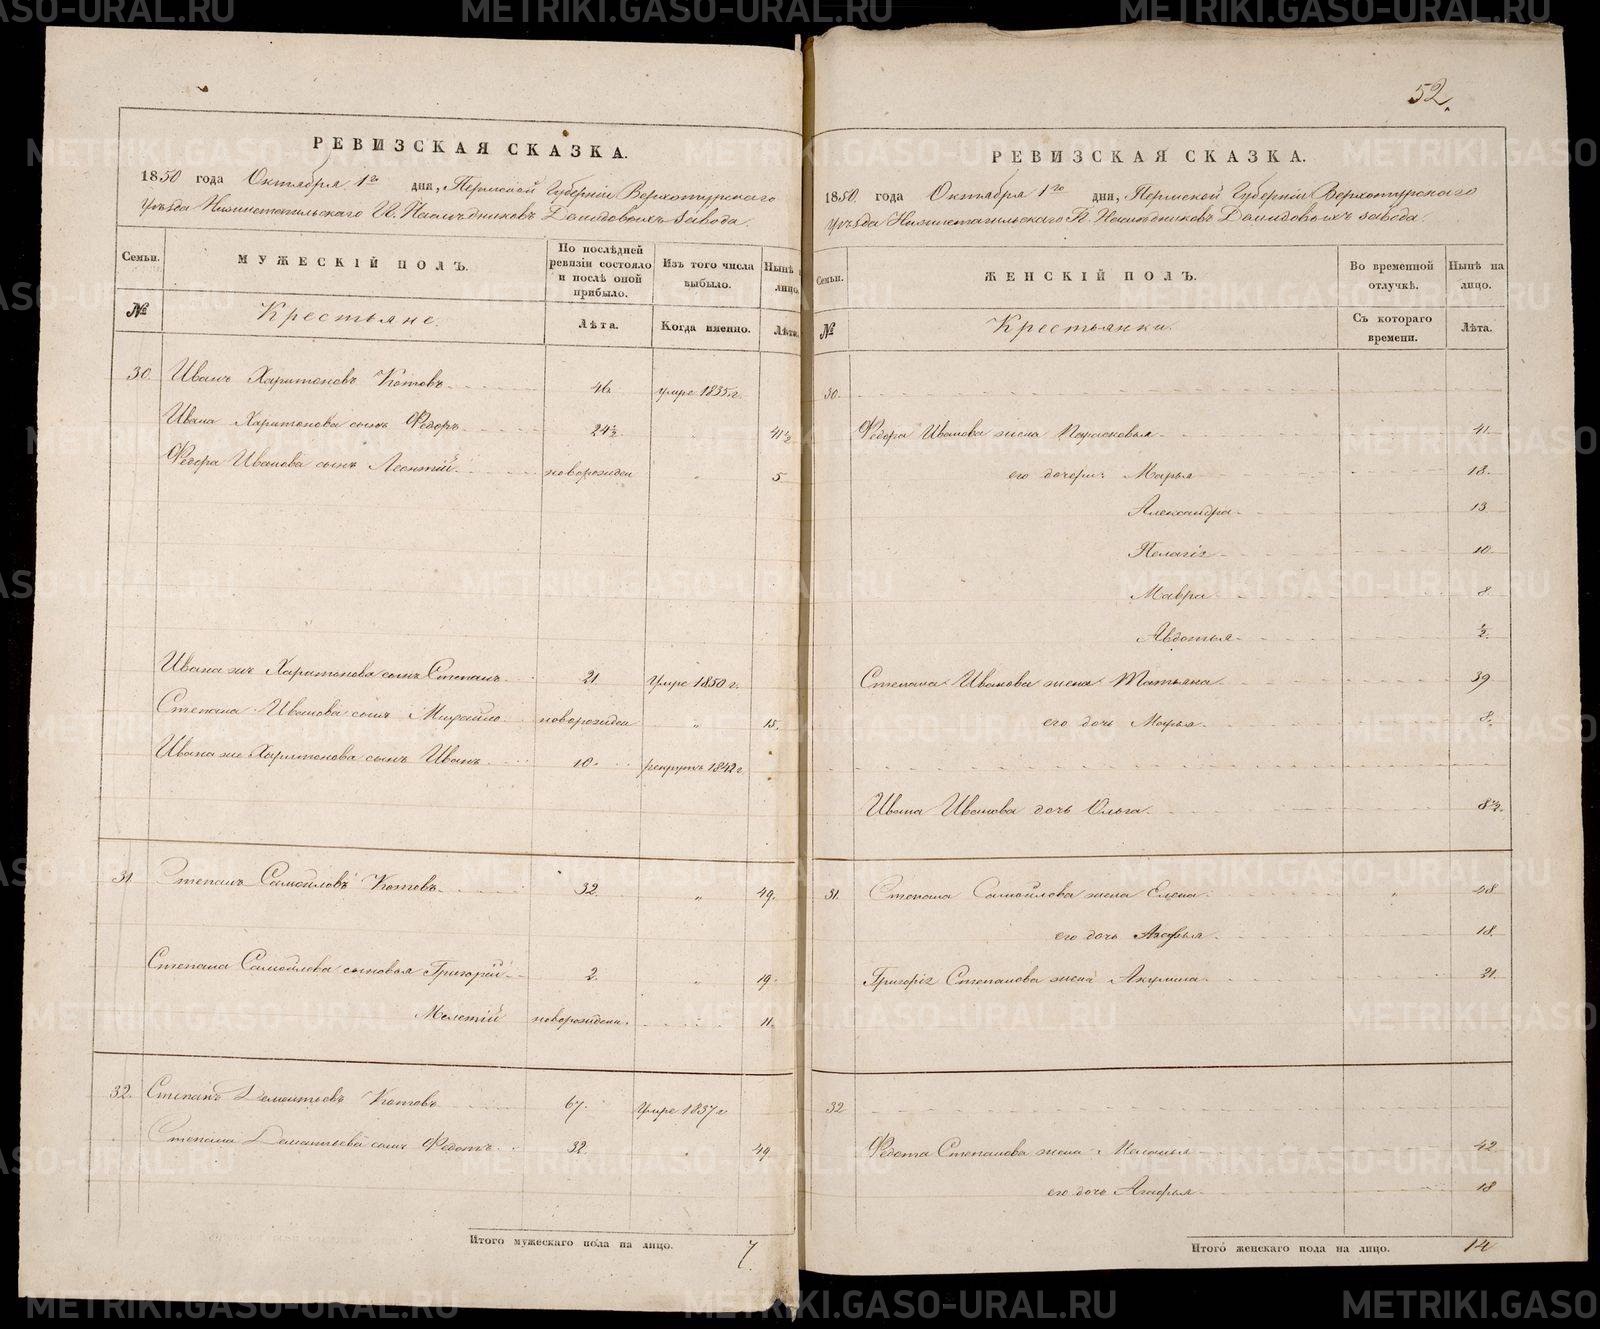 РЕВИЗСКАЯ СКАЗКА.
1850 года Октября 1го дня, Пермской Губерніи Верхотурскаго
Уѣзда Нижнетагильскаго П. Наслѣдниковъ Демидовыхъ завода.
Семьи.
МУЖЕСКІЙ ПОЛЪ.
По послѣдней ревизіи состояло и послѣ оной прибыло.
Изъ того числа выбыло.
Нынѣ на лицо.
№
Крестьяне.
Лѣта.
Когда именно.
Лѣта.
30. Иванъ Харитоновъ Котовъ 46 умре 1835 г.
Ивана Харитонова сынъ Федоръ 24½ " 41½
Федора Иванова сынъ Леонтій новорожден " 5
Ивана жъ Харитонова сынъ Степанъ 21 умре 1850 г.
Степана Иванова сынъ Михайло новорожден " 15.
Ивана же Харитонова сынъ Иванъ 10. рекрутъ 1842 г
31. Степанъ Самойловъ Котовъ 32. " 49.
Степана Самойлова сыновья Григорій 2. " 19.
Мелетій новорожден. 11.
32. Степанъ Дементьевъ Котовъ 67. умре 1837 г
Степана Дементьева сынъ Федотъ 32. 49
Итого мужескаго пола на лицо. 7
52.
РЕВИЗСКАЯ СКАЗКА.
1850 года Октября 1го дня, Пермской Губерніи Верхотурскаго
Уѣзда Нижнетагильскаго П. Наслѣдниковъ Демидовыхъ завода.
Семьи.
ЖЕНСКІЙ ПОЛЪ.
Во временной отлучкѣ.
Нынѣ на лицо.
№
Крестьянки.
Съ котораго времени.
Лѣта.
30.
Федора Иванова жена Парасковья 41.
его дочери: Марья 18.
Александра 13.
Пелагія 10.
Мавра 8.
Авдотья ½.
Степана Иванова жена Татьяна 39
его дочь Марья 8.
Ивана Иванова дочь Ольга 8½.
31. Степана Самойлова жена Елена " 48
его дочь Агафья 18.
Григорія Степанова жена Акулина 21.
32
Федота Степанова жена Меланья 42
его дочь Агафья 18
Итого женскаго пола на лицо. 14
METRIKI.GASO-URAL.RU